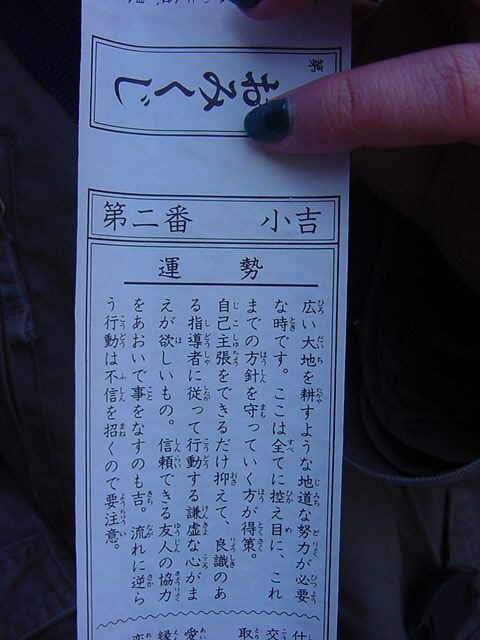 おみくじ
第
第二番 小吉
運勢
広い大地を耕すような地道な努力が必要
な時です。ここは全てに控え目に、これ
までの方針を守っていく方が得策。
自己主張をできるだけ抑えて、良識のあ
る指導者に従って行動する謙虚な心がま
えが欲しいもの。信頼できる友人の協力
をあおいで事をなすのも吉。流れに逆ら
う行動は不信を招くので要注意。